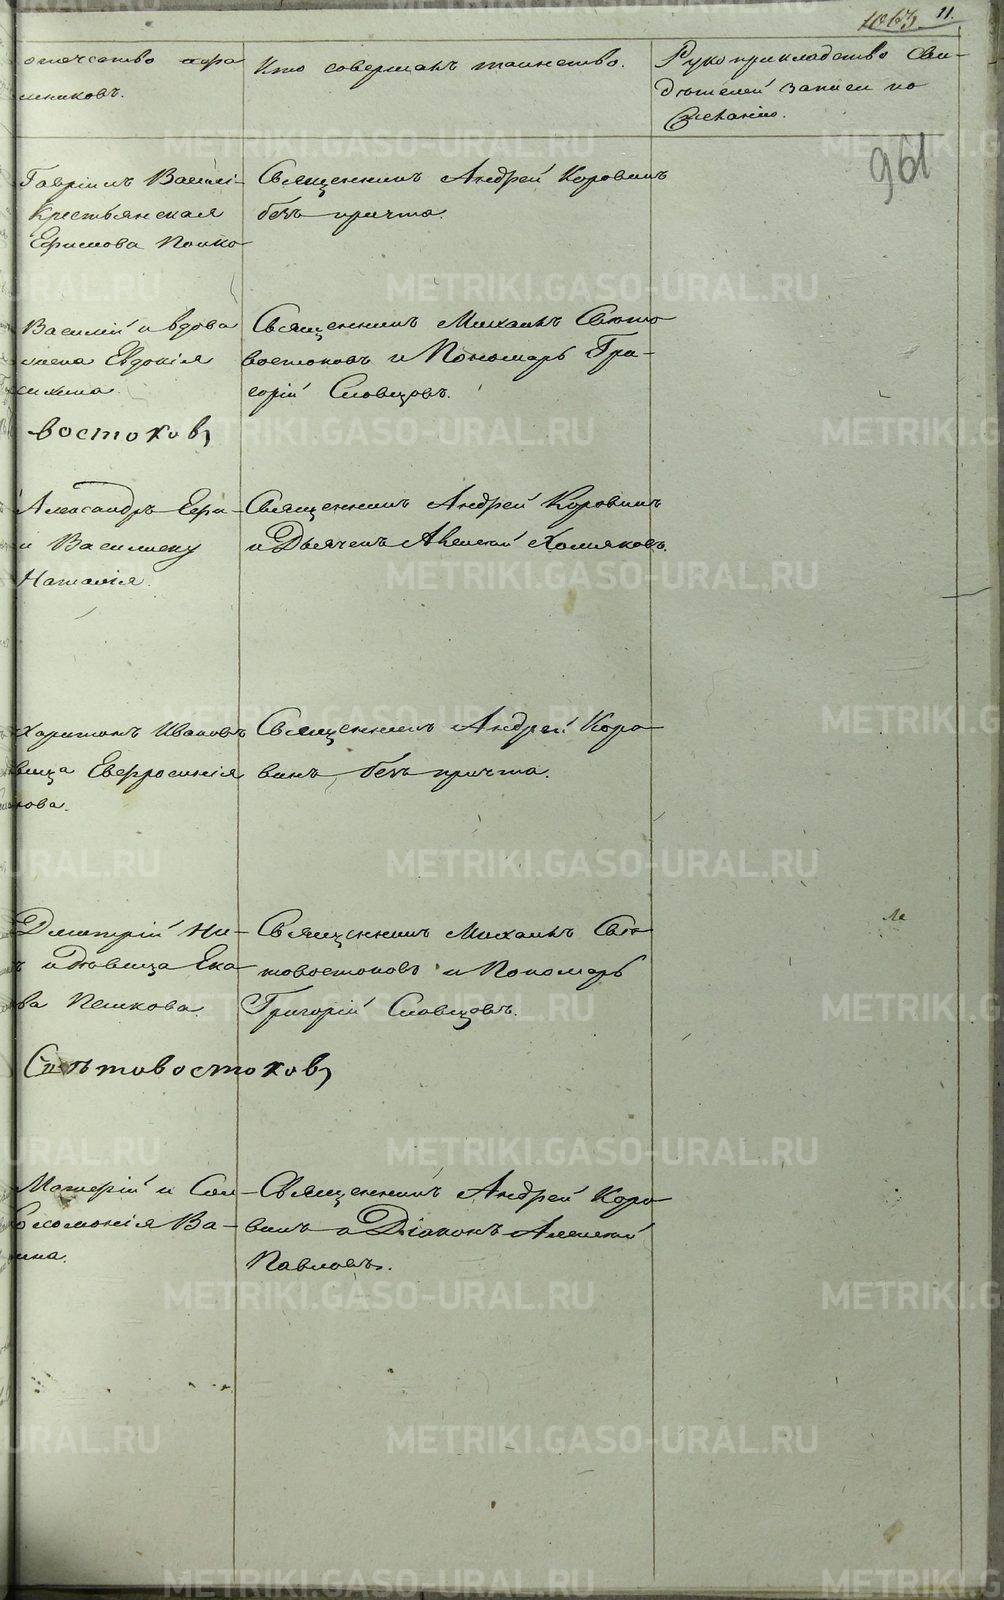 1063 11.
отчество воспри
емниковъ.
Кто совершалъ таинство.
Рукоприкладство сви-
дѣтелей записи по
желанію.
961
Гавріилъ Васил-
Крестьянская
Ефимова Попко
Священникъ Андрей Коровинъ
безъ причта.
Василій и вдова
Евдокія
Священникъ Михаилъ Свѣто
востоковъ и Пономарь Гри-
горій Словцовъ.
востоковъ
Александръ Ефи-
и Василиеву
Наталія.
Священникъ Андрей Коровинъ
и Дьячекъ Алексѣй Хомяковъ.
Харитонъ Ивановъ
вица Евфросинія
нова.
Священникъ Андрей Коро
винъ, безъ причта.
Дмитрій Ни-
ъ и дѣвица Ека
ва Пешкова.
Священникъ Михаилъ Свѣ
товостоковъ и Пономарь
Григорій Словцовъ.
Свѣтовостоковъ
и Сем-
оломонія Ва-
ина.
Священникъ Андрей Коро
винъ и Діаконъ Алексѣй
Павловъ.
METRIKI.GASO-URAL.RU